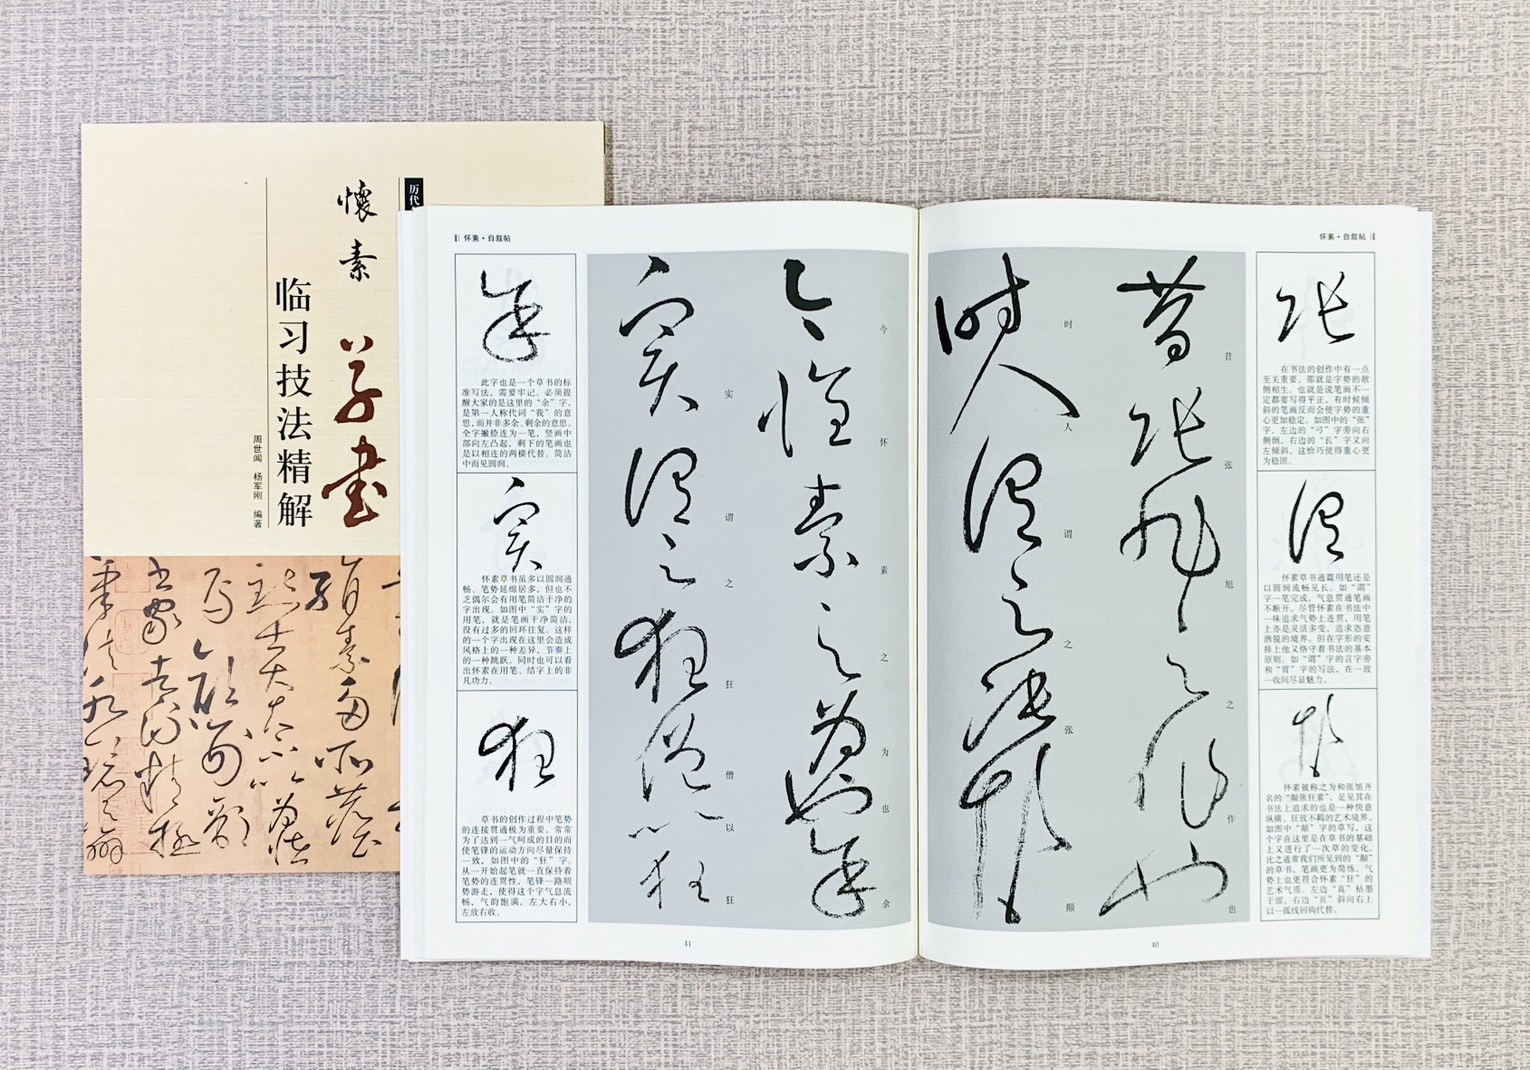 历代
懷素
草書
临习技法精解
周世闻 杨军刚 编著
怀素·自叙帖
張
在书法的创作中有一点
至关重要，那就是字势的欹
侧相生。也就是说笔画不一
定都要写得平正，有时候倾
斜的笔画反而会使字势的重
心更加稳定。如图中的“张”
字，左边的“弓”字旁向右
侧倒，右边的“长”字又向
左倾斜，这恰巧使得重心更
为稳固。
謂
怀素草书通篇用笔还是
以圆润流畅见长。如“谓”
字一笔完成，气息贯通笔画
不断开。尽管怀素在书法中
一味追求气势上连贯，用笔
上亦是灵活多变，追求恣意
洒脱的境界。但在字形的安
排上他又恪守着书法的基本
原则。如“谓”字的言字旁
和“胃”字的写法，在一放
一收间尽显魅力。
顛
怀素被称之为和张旭齐
名的“颠张狂素”，足见其在
书法上追求的也是一种快意
纵横、狂放不羁的艺术境界。
如图中“颠”字的草写，这
个字在这里是在草书的基础
上又进行了一次草的变化。
比之通常我们所见到的“颠”
的草书，笔画更为简练，气
势上也更符合怀素“狂”的
艺术气质。左边“真”枯墨
干涩，右边“页”斜向右上
以一弧线回钩代替。
昔張旭之作也
昔张旭之作也
時人謂之張顛
时人谓之张颠
40
怀素·自叙帖
今懷素之為也余
今怀素之为也余
實謂之狂僧以狂
实谓之狂僧以狂
余
此字也是一个草书的标
准写法，需要牢记。必须提
醒大家的是这里的“余”字，
是第一人称代词“我”的意
思，而并非多余、剩余的意思。
全字撇捺连为一笔，竖画中
部向左凸起，剩下的笔画也
是以相连的两横代替。简洁
中而见圆润。
實
怀素草书虽多以圆润通
畅、笔势延绵居多，但也不
乏偶尔会有用笔简洁干净的
字出现。如图中“实”字的
用笔，就是笔画干净简洁，
没有过多的回环往复。这样
的一个字出现在这里会造成
风格上的一种差异，节奏上
的一种跳跃。同时也可以看
出怀素在用笔、结字上的非
凡功力。
狂
草书的创作过程中笔势
的连接贯通极为重要。常常
为了达到一气呵成的目的而
使笔锋的运动方向尽量保持
一致，如图中的“狂”字。
从一开始起笔就一直保持着
笔势的连贯性，笔锋一路顺
势游走，使得这个字气息流
畅，气韵饱满，左大右小，
左放右收。
41